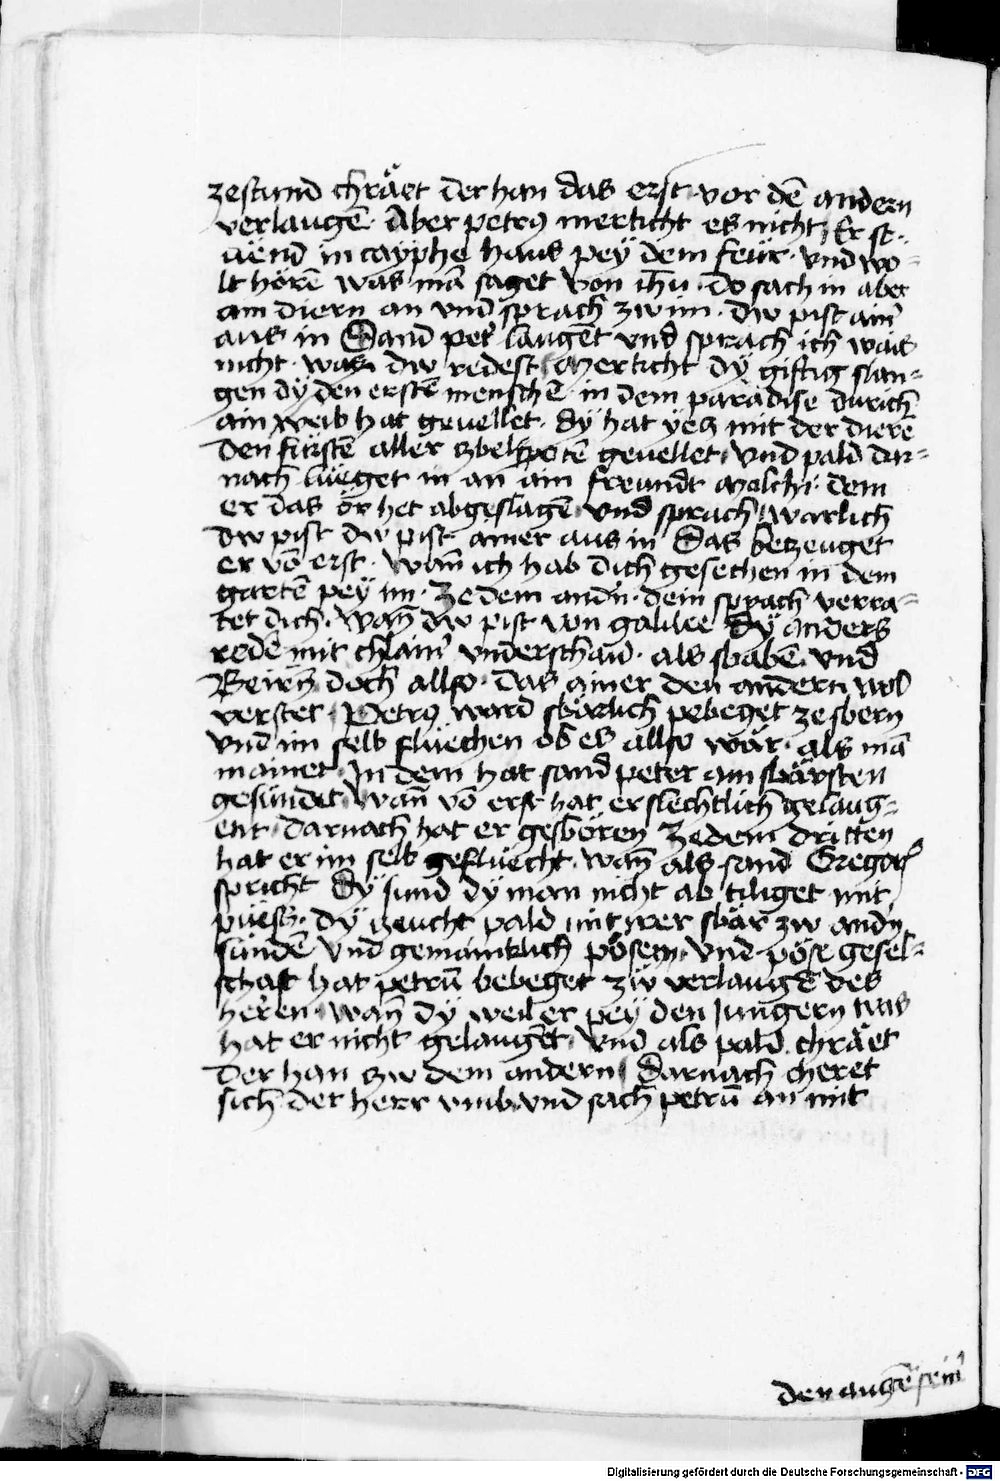 zestund chräet der han das erst vor dē andern
verlaugē · Aber petrꝰ merkcht es nicht Er st·
uēnd in cayphe haus pey dem feür · vnd wo=
lt hörē was mā saget von ih̄u · do sach in aber
ain diern an vnd sprach zw im · dw pist ainˀ
aus in Sand peṫ laugēt vnd sprach ich wais
nicht was dw redest Merkcht dy giftig slan=
gen dy den erstē menschē in dem paradise durich
ain weib hat geuellet · dy hat yecz mit der dierē
den fürstē aller zbelfpotē geuellet vnd pald dar=
nach lüeget in an ain freundt Malchi dem
er das ör het abgeslagē vnd sprach warlich
dw pist dw pist ainer aus in Das betzeuget
er vō erst · wan̄ ich hab dich gesechen in dem
gartē pey im · Ze dem andn̄ · dein sprach verra=
tet dich · wan̄ dw pist von galilee dy anders
redē mit chlainˀ vnderschaid · als sbabē vnd
Beirn̄ doch allso · das ainer den andern wol
verstet Petrꝰ ward sbärlich pebeget ze sbern
vnd im selb fluechen ob es allso wär · als mā
mainet In dem hat sand peter am sbärsten
gesündet wan̄ vō erst hat er slechtlich gelaug=
ent · darnach hat er gesbören Ze dem dritten
hat er im selb gefluecht · wan̄ als sand Gregorˀ
spricht Dy sund dy man nicht ab tiliget mit
püess · dy zeucht pald mit irer sbär zw andn̄
sündē vnd gemainklich pösern · vnd pöse gesel=
schaft hat petrū bebeget zw verlaugē des
heren wan̄ dy weil er pey den Jungern was
hat er nicht gelaugēt vnd als pald chräet
der han zw dem andern Darnach cheret
sich der herr vmb vnd sach petrū an mit
den augē seinˀ
Digitalisierung gefördert durch die Deutsche Forschungsgemeinschaft - DFG